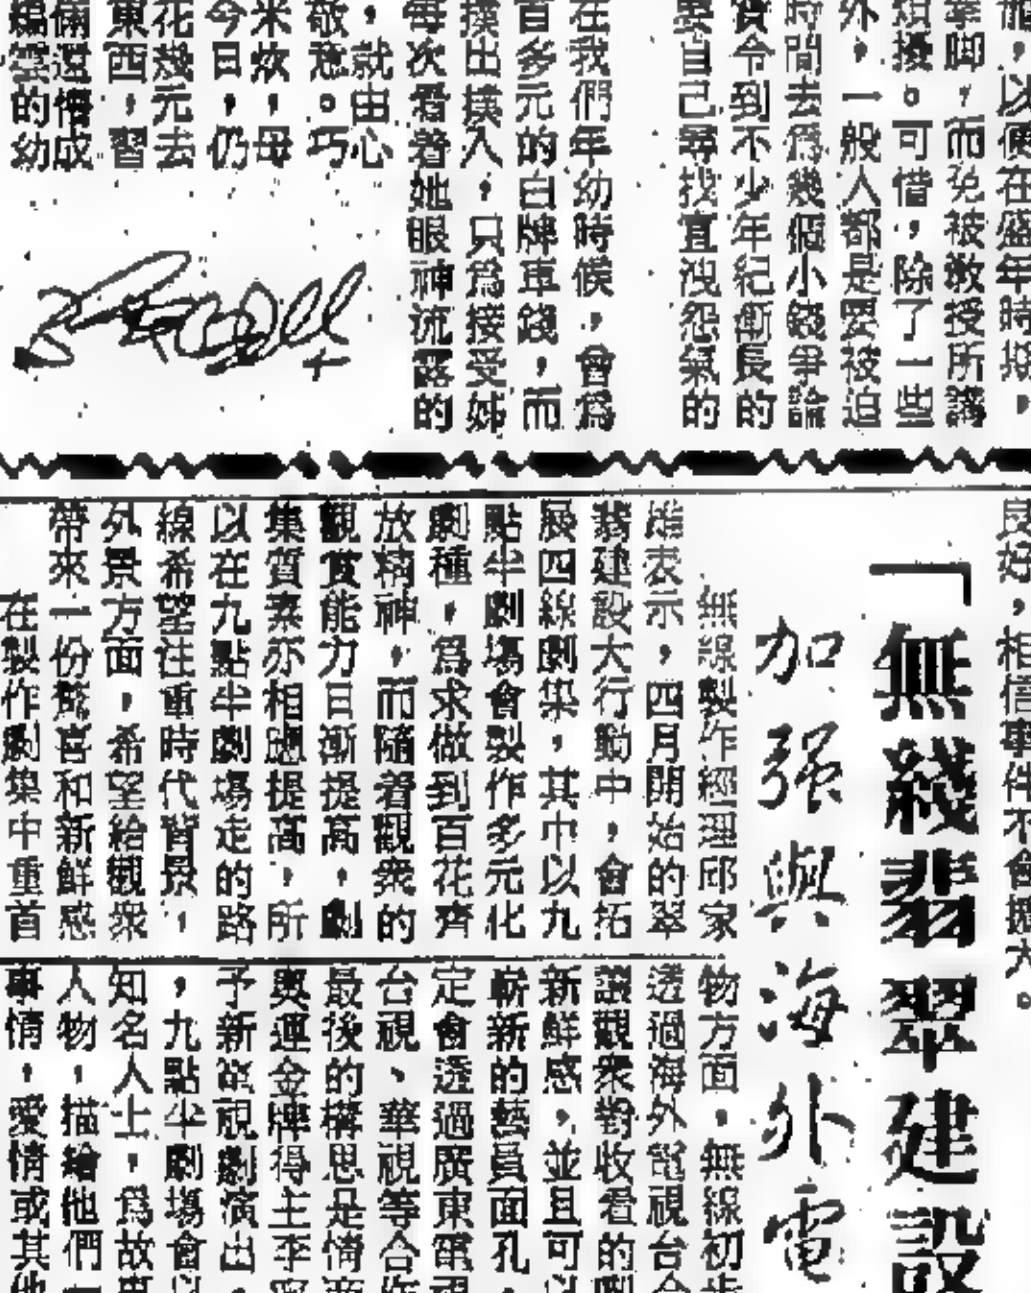 能,以便在盛年時期,
而免被教授所
煩擾。可惜,除了一些
外,一般人都是要被迫
時間去爲幾個小錢爭論
實令到不少年紀漸長的
要自己尋找宣洩怨氣的
在我們年幼時候,會爲
百多元的白牌車錢,而
撲出撲入,只爲接受姊
每次看着她眼神流露的
,就由心
敬意。巧
米炊,母
今日,仍
花幾元去
東西,習
的幼
良好,相信事件不會擴大。
「無綫翡翠建設
加强與海外電
無線製作經理邱家
雄表示,四月開始的翠
翡建設大行動中,會拓
展四線劇集,其中以九
點半劇場會製作多元化
劇種,爲求做到百花齊
放精神,而隨着觀衆的
觀賞能力日漸提高,劇
集質素亦相應提高,所
以在九點半劇場走的路
線希望注重時代背景,
外景方面,希望給觀衆
帶來一份驚喜和新鮮感
在製作劇集中重首
物方面,無線初步
透過海外電視台合
讓觀衆對收看的劇
新鮮感,並且可以
嶄新的藝員面孔,
定會透過廣東電視
台視、華視等合作
最後的構思是情商
奧運金牌得主李寧
予新電視劇演出,
,九點半劇場會以
知名人士,爲故事
人物,描繪他們一
事情,愛情或其他